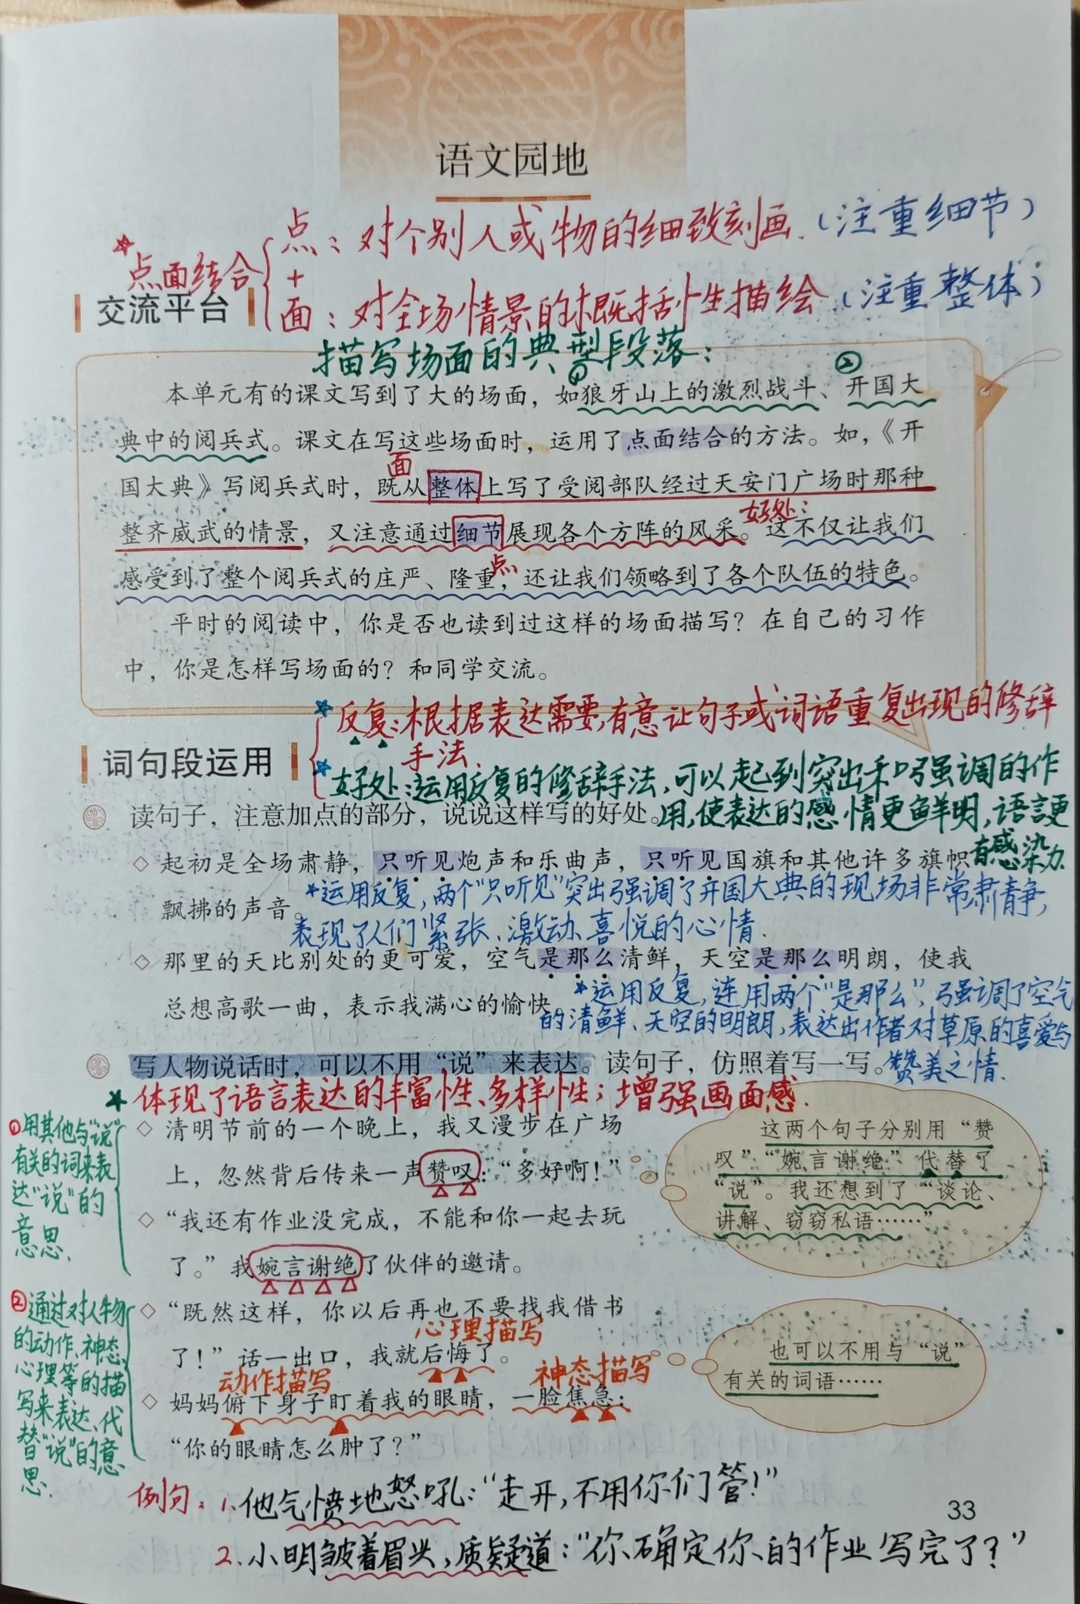 语文园地
点：对个别人或物的细致刻画.（注重细节）
★点面结合
+
交流平台
面：对全场情景的概括性描绘（注重整体）
描写场面的典型段落：
① ②
本单元有的课文写到了大的场面，如狼牙山上的激烈战斗、开国大
典中的阅兵式。课文在写这些场面时，运用了点面结合的方法。如，《开
面
国大典》写阅兵式时，既从整体上写了受阅部队经过天安门广场时那种
好处：
整齐威武的情景，又注意通过细节展现各个方阵的风采。这不仅让我们
点
感受到了整个阅兵式的庄严、隆重，还让我们领略到了各个队伍的特色。
平时的阅读中，你是否也读到过这样的场面描写？在自己的习作
中，你是怎样写场面的？和同学交流。
★反复：根据表达需要，有意让句子或词语重复出现的修辞
手法.
词句段运用
★好处：运用反复的修辞手法，可以起到突出和强调的作
用，使表达的感情更鲜明，语言更
有感染力
读句子，注意加点的部分，说说这样写的好处。
◇ 起初是全场肃静，只听见炮声和乐曲声，只听见国旗和其他许多旗帜
飘拂的声音。
★运用反复，两个“只听见”突出强调了开国大典的现场非常肃静，
表现了人们紧张、激动、喜悦的心情.
◇ 那里的天比别处的更可爱，空气是那么清鲜，天空是那么明朗，使我
总想高歌一曲，表示我满心的愉快
★运用反复，连用两个“是那么”，强调了空气
的清鲜、天空的明朗，表达出作者对草原的喜爱与
赞美之情.
写人物说话时，可以不用“说”来表达。读句子，仿照着写一写。
★体现了语言表达的丰富性、多样性；增强画面感.
①用其他与“说”
有关的词来表
达“说”的
意思.
◇ 清明节前的一个晚上，我又漫步在广场
上，忽然背后传来一声赞叹：“多好啊！”
◇ “我还有作业没完成，不能和你一起去玩
了。”我婉言谢绝了伙伴的邀请。
这两个句子分别用“赞
叹”“婉言谢绝”代替了
“说”。我还想到了“谈论、
讲解、窃窃私语……”
②通过对人物
的动作、神态、
心理等的描
写来表达、代
替“说”的意
思.
◇ “既然这样，你以后再也不要找我借书
心理描写
了！”话一出口，我就后悔了。
动作描写 神态描写
◇ 妈妈俯下身子盯着我的眼睛，一脸焦急：
“你的眼睛怎么肿了？”
也可以不用与“说”
有关的词语……
例句：1.他气愤地怒吼：“走开，不用你们管！”
33
2.小明皱着眉头，质疑道：“你确定你的作业写完了？”